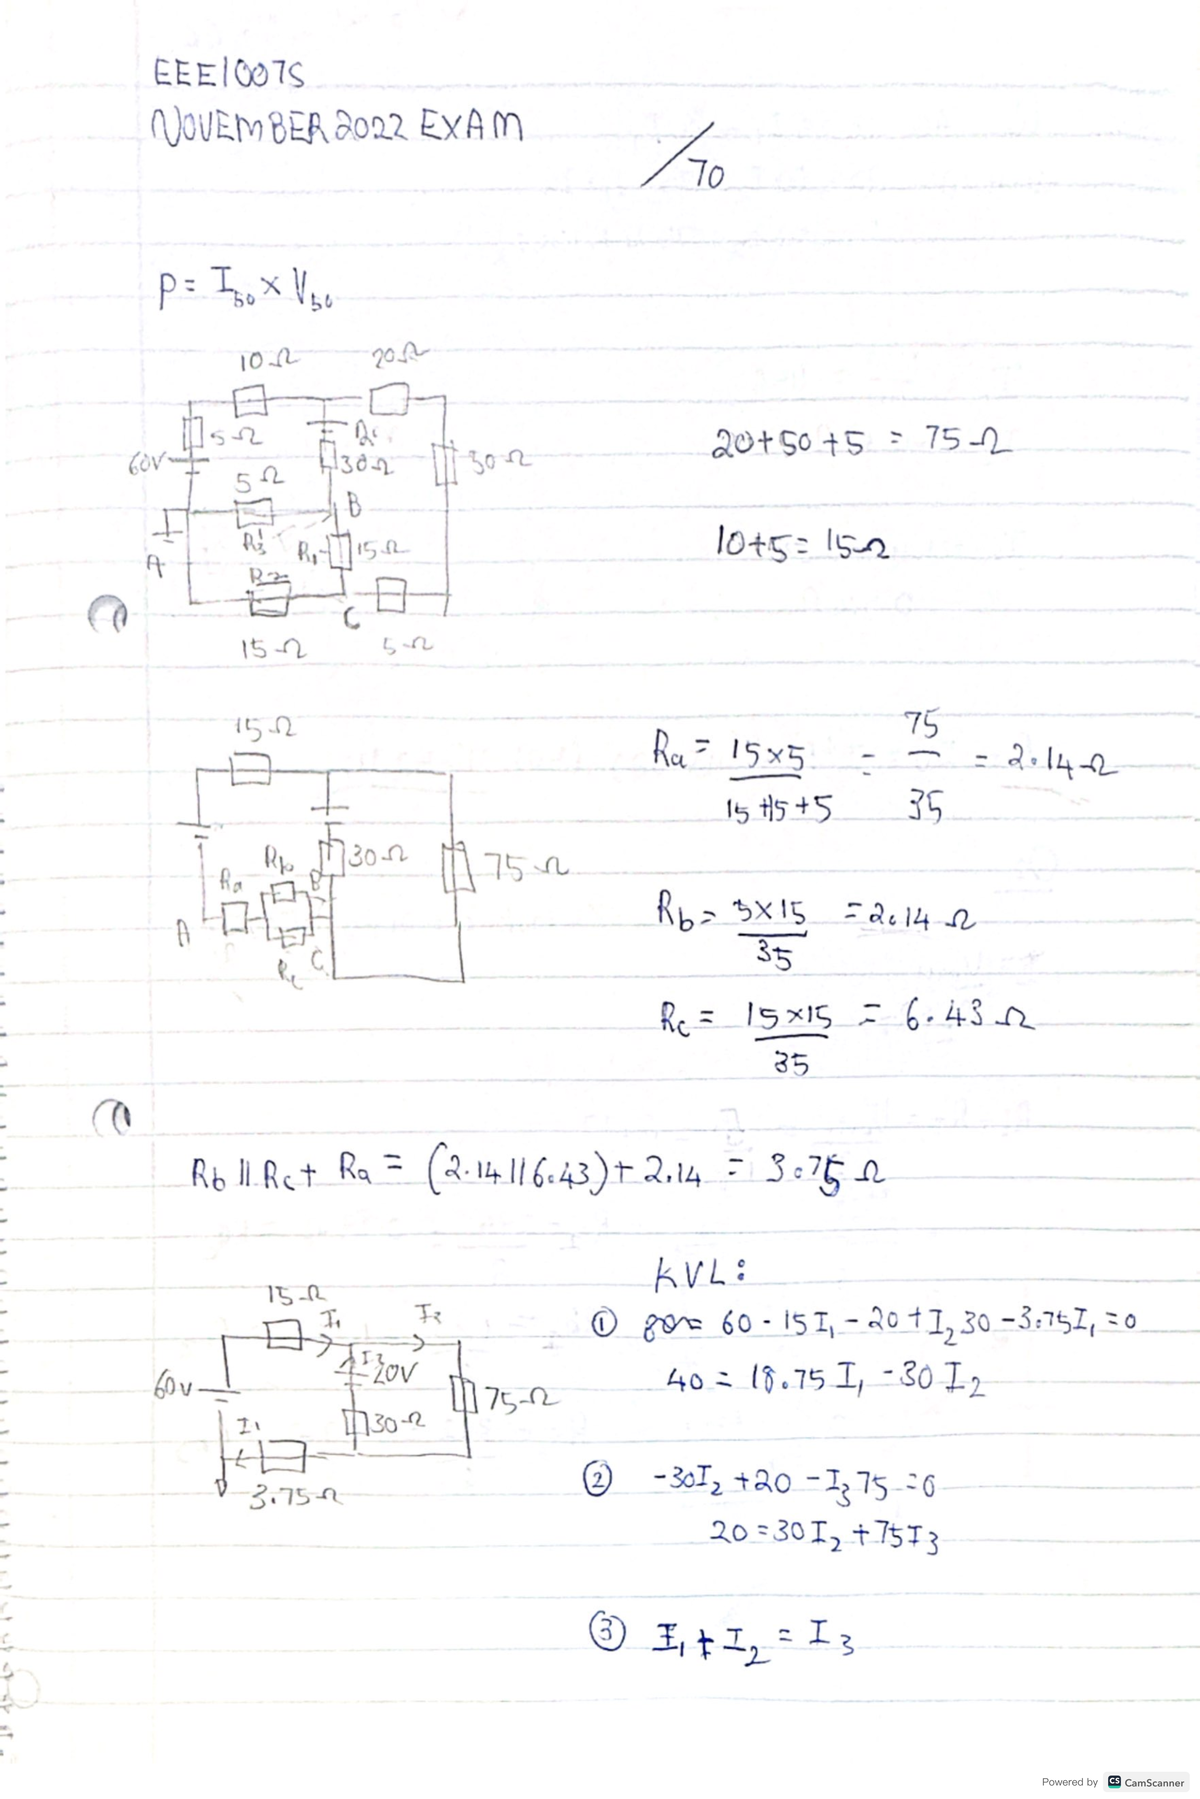 EEE1007S
NOVEMBER 2022 EXAM
/70
P = I₅₀ × V₅₀
10Ω 20Ω
5Ω
60V 30Ω 50Ω
5Ω
B
R₃ R₁ 15Ω
A
R₂
C
15Ω 5Ω
20+50+5 = 75Ω
10+5 = 15Ω
15Ω
30Ω 75Ω
Rb
Ra B
A
Rc C
Ra = 15×5 / 15+15+5 = 75 / 35 = 2.14Ω
Rb = 5×15 / 35 = 2.14Ω
Rc = 15×15 / 35 = 6.43Ω
Rb || Rc + Ra = (2.14 || 6.43) + 2.14 = 3.75Ω
15Ω
I₁ I₃
20V
60V 75Ω
I₁ 30Ω
3.75Ω
KVL:
① 60 - 15I₁ - 20 + I₂30 - 3.75I₁ = 0
40 = 18.75I₁ - 30I₂
② -30I₂ + 20 - I₃75 = 0
20 = 30I₂ + 75I₃
③ I₁ + I₂ = I₃
Powered by CS CamScanner